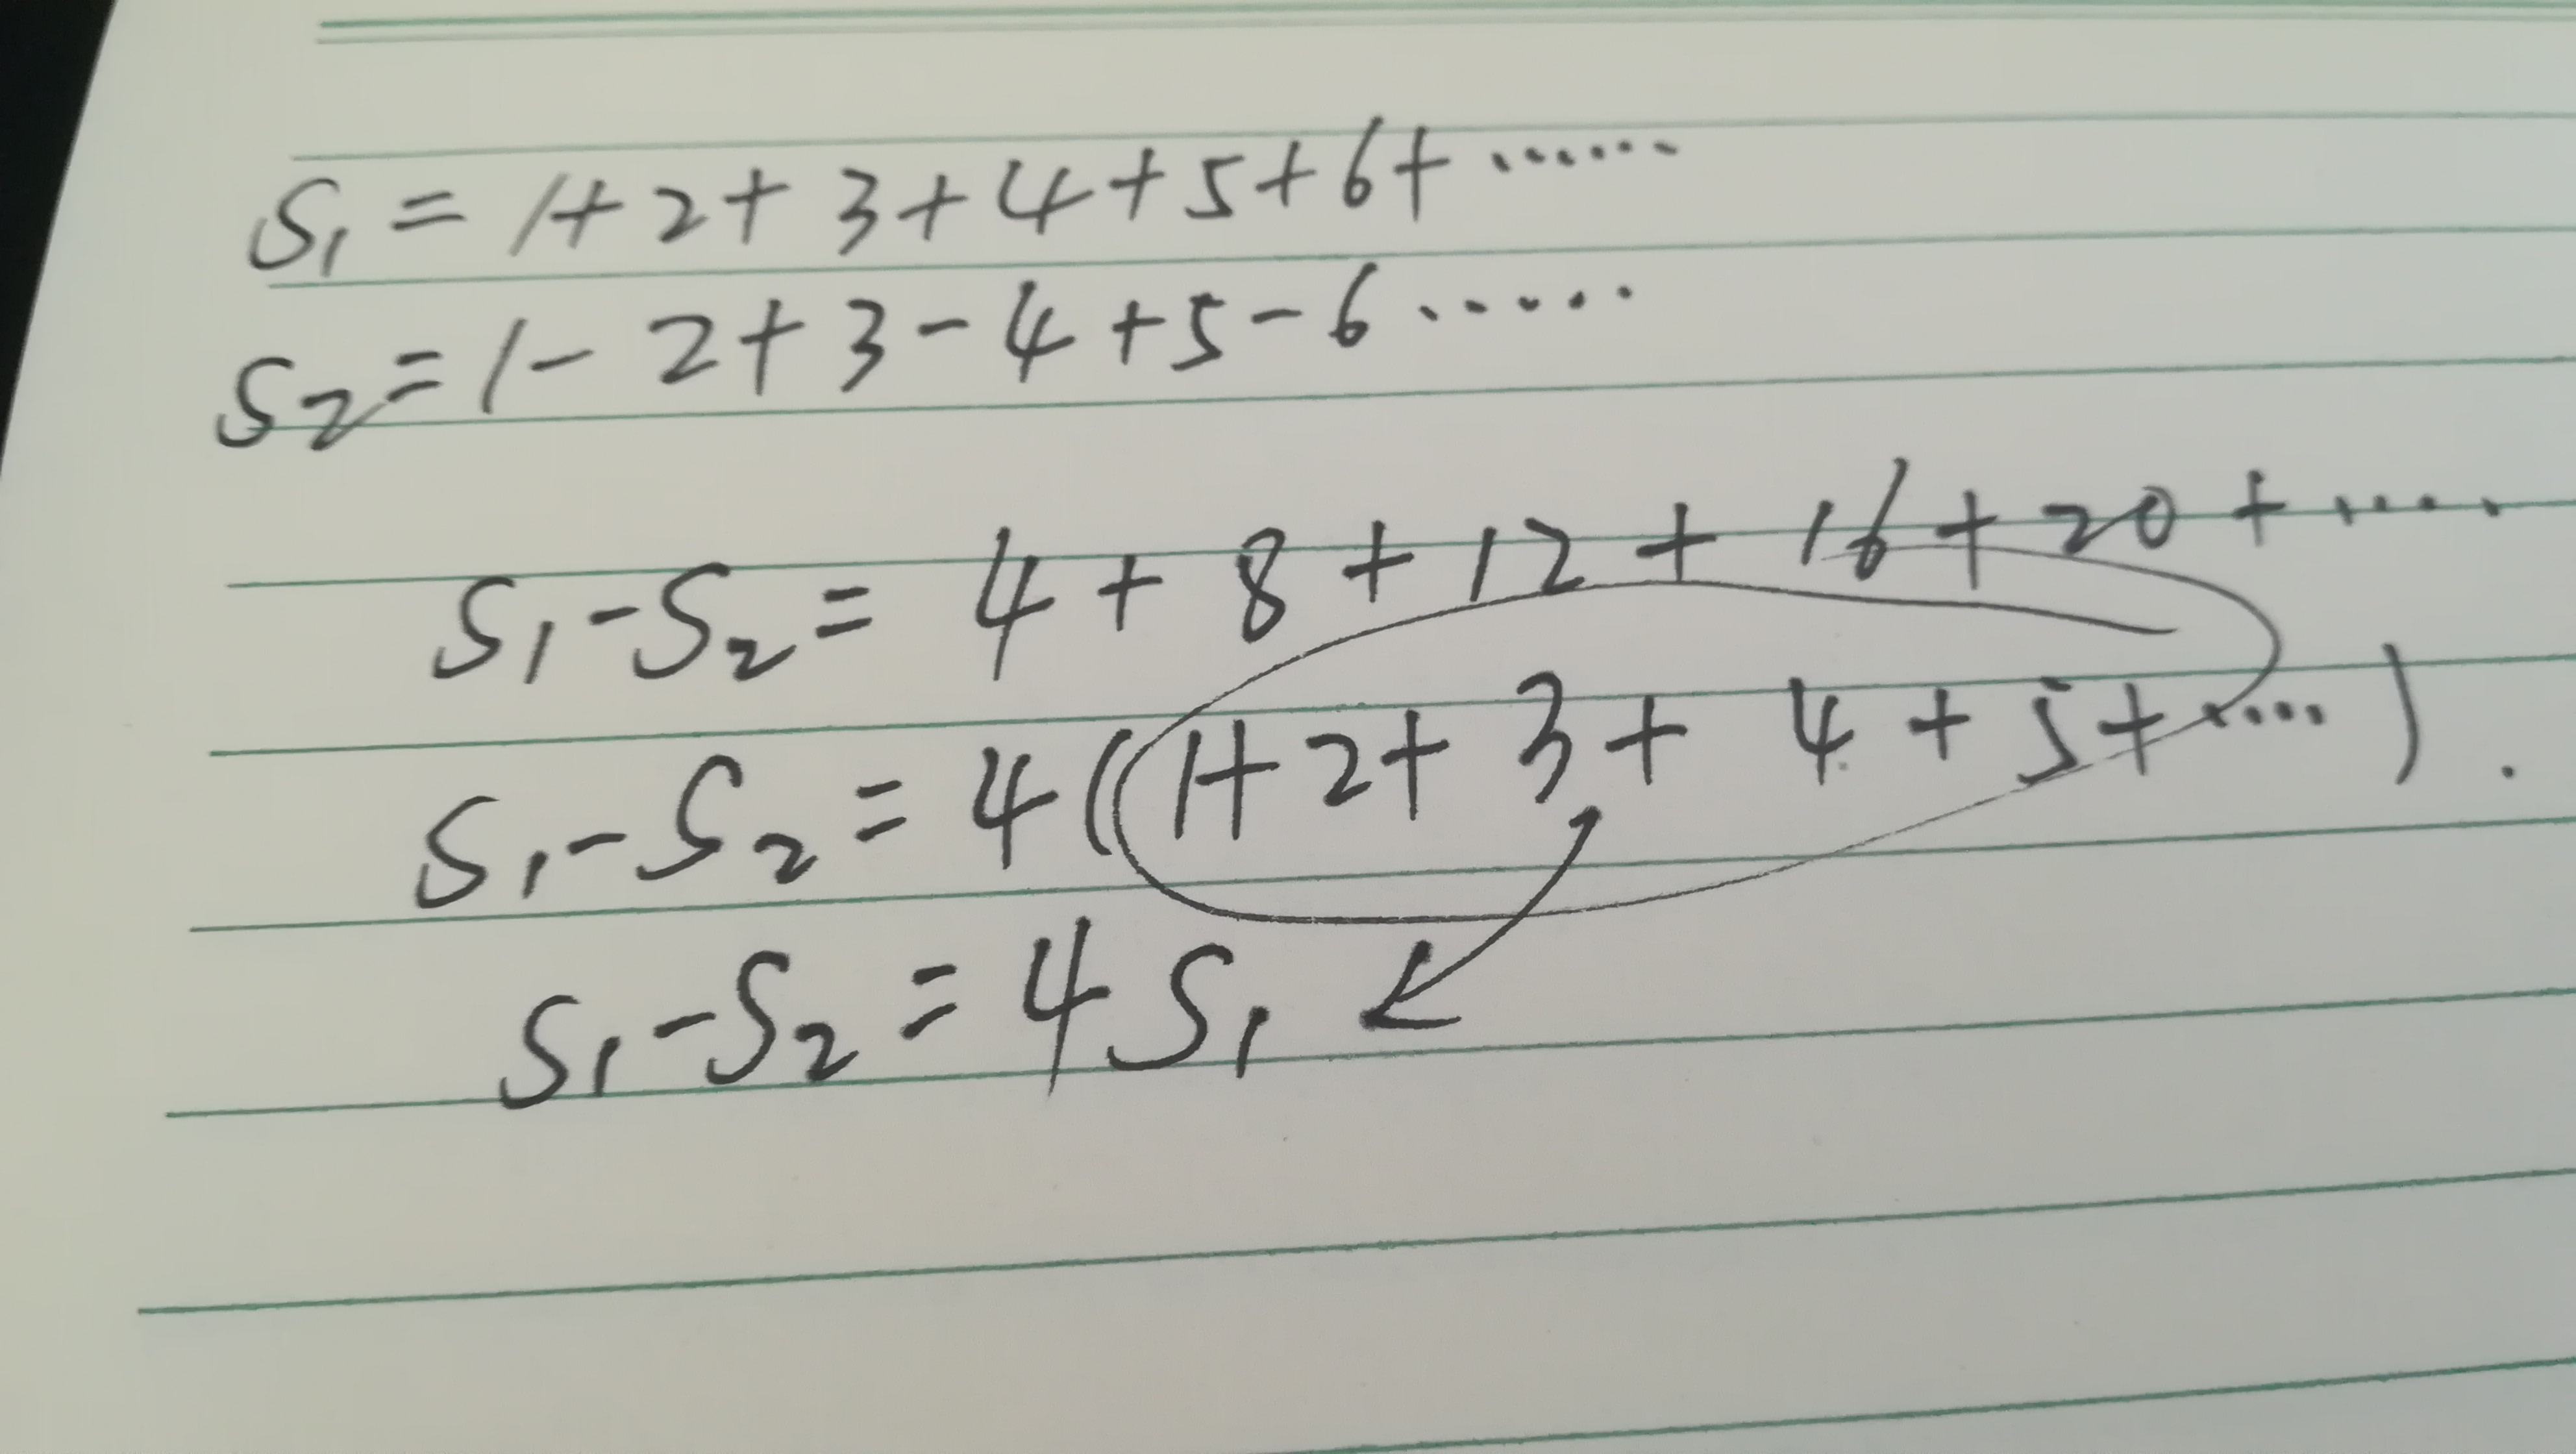 S₁ = 1+2+3+4+5+6+……
S₂ = 1-2+3-4+5-6……
S₁-S₂ = 4+8+12+16+20+……
S₁-S₂ = 4(1+2+3+4+5+……).
S₁-S₂ = 4S₁